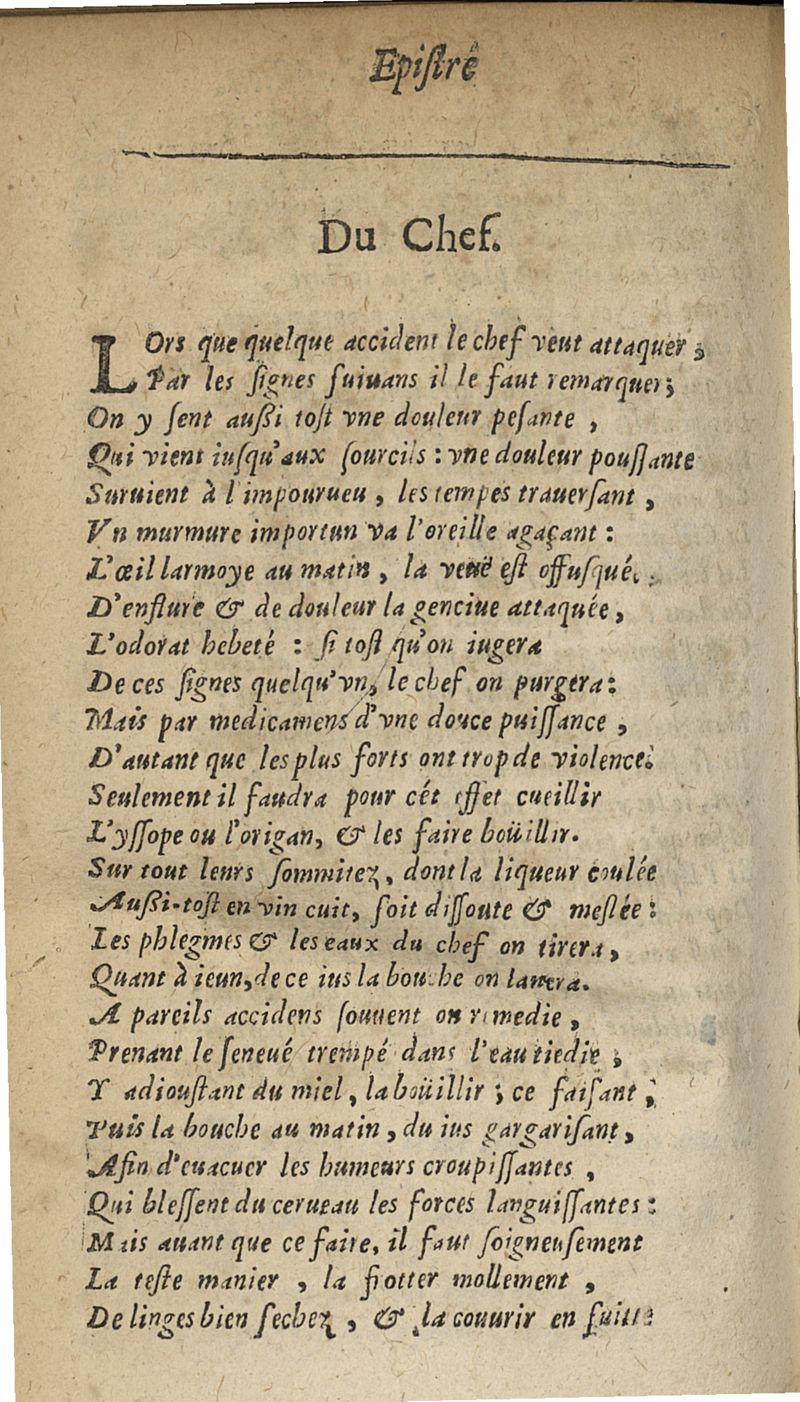 Epiſtre
Du Chef.
LOrs que quelque accident le chef veut attaquer,
Par les ſignes ſuiuans il le faut remarquer;
On y ſent auſſi toſt vne douleur peſante,
Qui vient iuſqu'aux ſourcils : vne douleur pouſſante
Suruient à l'impourueu, les tempes trauerſant,
Vn murmure importun va l'oreille agaçant :
L'œil larmoye au matin, la veuë eſt offuſquée,
D'enflure & de douleur la genciue attaquée,
L'odorat hebeté : ſi toſt qu'on iugera
De ces ſignes quelqu'vn, le chef on purgera:
Mais par medicamens d'vne douce puiſſance,
D'autant que les plus forts ont trop de violence.
Seulement il faudra pour cét effet cueillir
L'yſſope ou l'origan, & les faire boüillir.
Sur tout leurs ſommitez, dont la liqueur coulée
Auſſi-toſt en vin cuit, ſoit diſſoute & meſlée :
Les phlegmes & les eaux du chef on tirera,
Quant à ieun, de ce ius la bouche on lauera.
A pareils accidens ſouuent on remedie,
Prenant le ſeneué trempé dans l'eau tiedie ;
Y adiouſtant du miel, la boüillir ; ce faiſant ;
Puis la bouche au matin, du ius gargariſant,
Afin d'euacuer les humeurs croupiſſantes,
Qui bleſſent du cerueau les forces languiſſantes :
Mais auant que ce faire, il faut ſoigneuſement
La teſte manier, la frotter mollement,
De linges bien ſechez, & la couurir en ſuitte